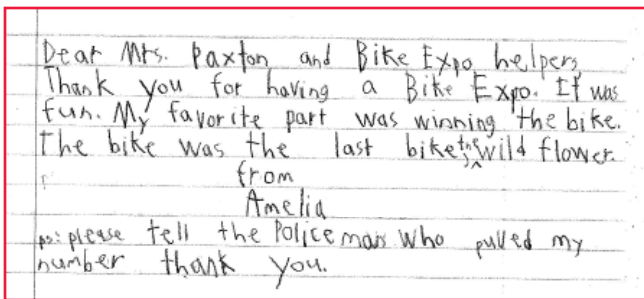 Dear Mrs. Paxton and Bike Expo helpers,
Thank you for having a Bike Expo. It was
fun. My favorite part was winning the bike.
The bike was the last bike, the wild flower.
from
Amelia
ps: please tell the Police man who pulled my
number thank you.